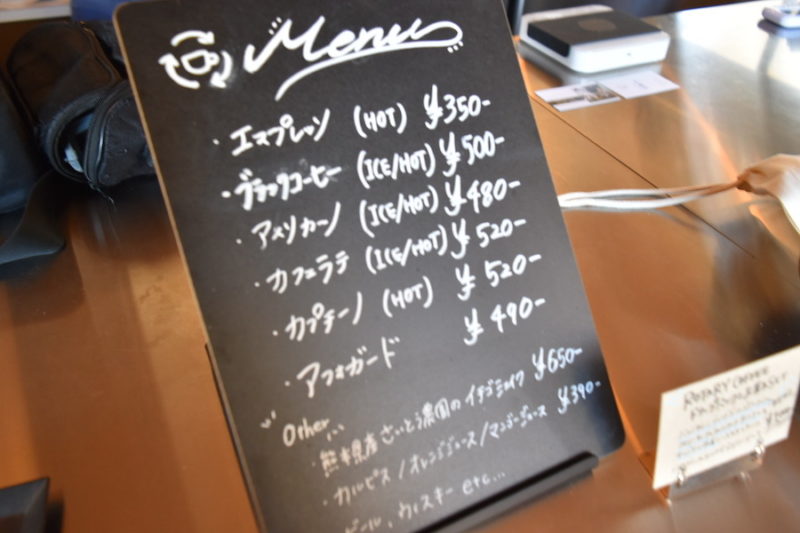 Menu
・エスプレッソ (HOT) ¥350-
・ブラックコーヒー (ICE/HOT) ¥500-
・アメリカーノ (ICE/HOT) ¥480-
・カフェラテ (ICE/HOT) ¥520-
・カプチーノ (HOT) ¥520-
・アフォガード ¥490-
Other
・熊本県産さいとう農園のイチゴミルク ¥650-
・カルピス/オレンジジュース/マンゴージュース ¥390-
ビール、ウィスキー etc...
ROTARY COFFEE